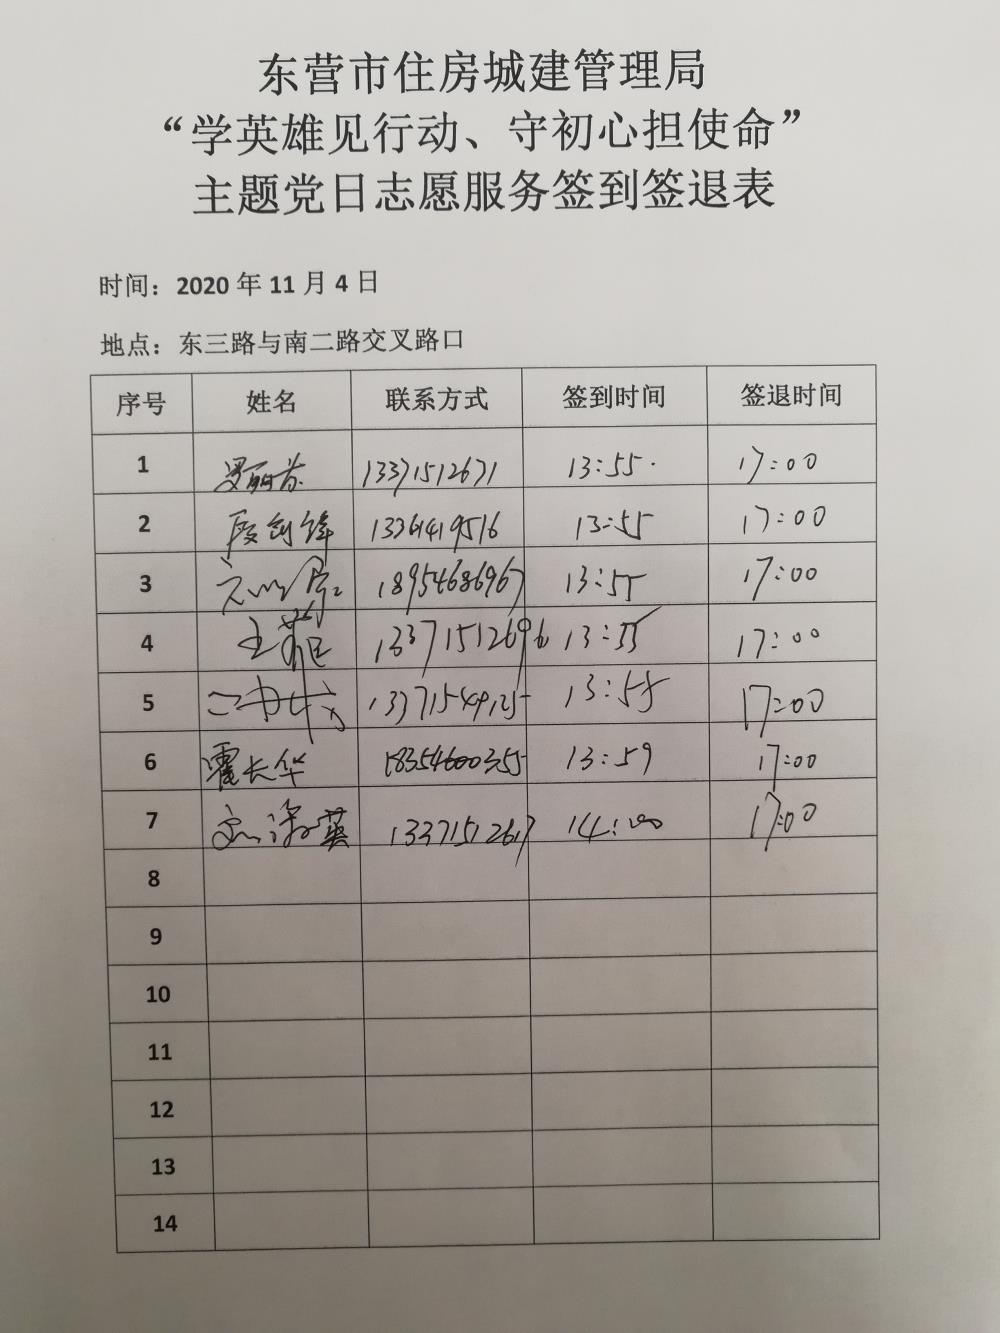 东营市住房城建管理局
“学英雄见行动、守初心担使命”
主题党日志愿服务签到签退表
时间：2020 年 11 月 4 日
地点：东三路与南二路交叉路口
序号 姓名 联系方式 签到时间 签退时间
1 13371512671 13:55 17:00
2 段剑锋 13361419516 13:55 17:00
3 18954686967 13:55 17:00
4 13371512696 13:55 17:00
5 13371549125 13:55 17:00
6 霍长华 18354600355 13:59 17:00
7 13371512617 14:00 17:00
8
9
10
11
12
13
14